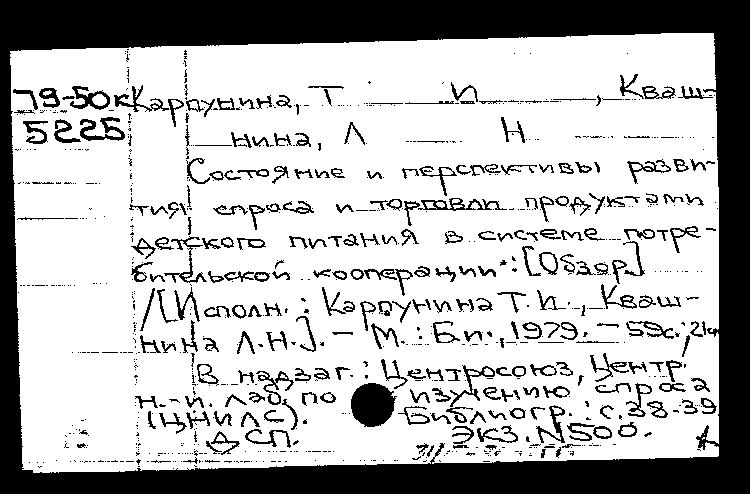 79-50к Карпунина, Т И , Кваш-
5225 нина, Л Н
Состояние и перспективы разви-
тия спроса и торговли продуктами
детского питания в системе потре-
бительской кооперации : [Обзор]
/[Исполн. : Карпунина Т.И., Кваш-
нина Л.Н.]. - М. : Б.и., 1979. - 59с.; 21см
В надзаг.: Центросоюз, Центр.
н.-и. лаб. по изучению спроса
(ЦНИЛС). Библиогр.: с.38-39
ДСП. Экз. N500.